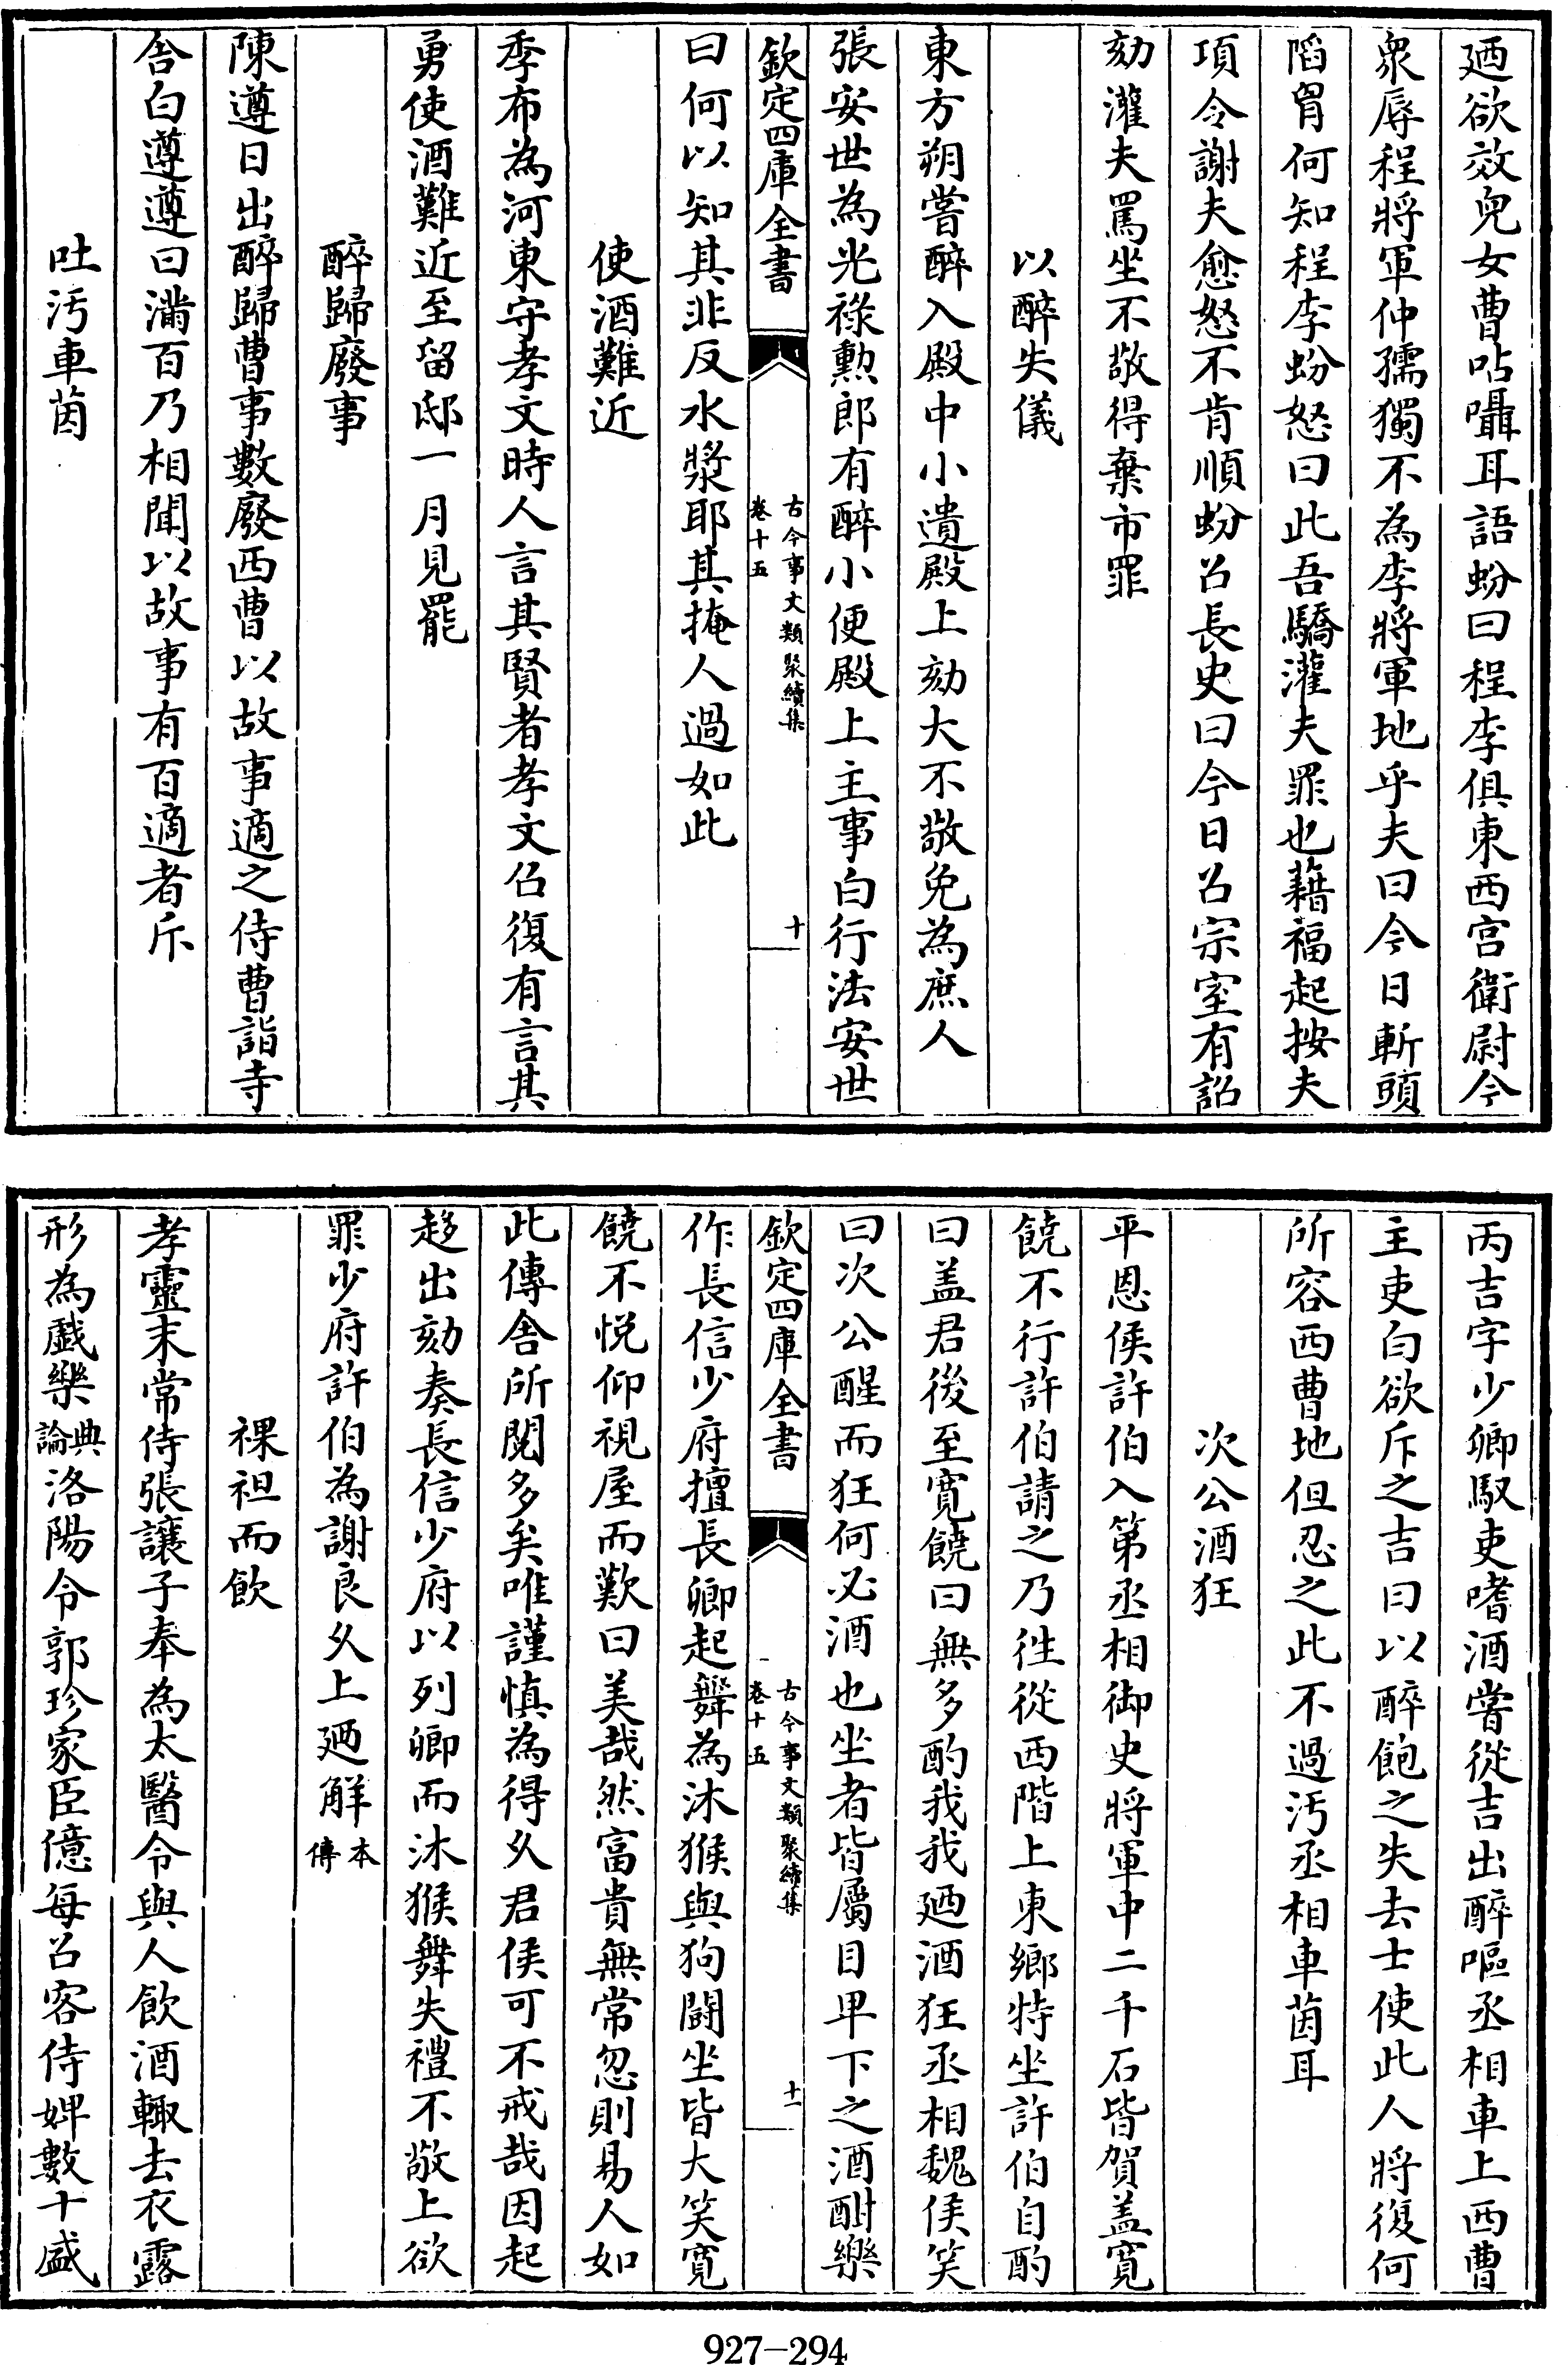 廼欲效兒女曹呫囁耳語蚡曰程李俱東西宮衛尉今
衆辱程將軍仲孺獨不為李將軍地乎夫曰今日斬頭
陷胷何知程李蚡怒曰此吾驕灌夫罪也藉福起按夫
項令謝夫愈怒不肯順蚡召長史曰今日召宗室有詔
劾灌夫罵坐不敬得棄市罪
以醉失儀
東方朔嘗醉入殿中小遺殿上劾大不敬免為庶人
張安世為光祿勲郎有醉小便殿上主事白行法安世
欽定四庫全書
古今事文類聚續集
卷十五
十
曰何以知其非反水漿耶其掩人過如此
使酒難近
季布為河東守孝文時人言其賢者孝文召復有言其
勇使酒難近至留邸一月見罷
醉歸廢事
陳遵日出醉歸曹事數廢西曹以故事適之侍曹詣寺
舍白遵遵曰滿百乃相聞以故事有百適者斥
吐汚車茵
丙吉字少卿馭吏嗜酒嘗從吉出醉嘔丞相車上西曹
主吏白欲斥之吉曰以醉飽之失去士使此人將復何
所容西曹地但忍之此不過汚丞相車茵耳
次公酒狂
平恩侯許伯入第丞相御史將軍中二千石皆賀盖寛
饒不行許伯請之乃徃從西階上東鄉特坐許伯自酌
曰盖君後至寛饒曰無多酌我我廼酒狂丞相魏侯笑
曰次公醒而狂何必酒也坐者皆屬目卑下之酒酣樂
欽定四庫全書
古今事文類聚續集
卷十五
十一
作長信少府擅長卿起舞為沐猴與狗鬭坐皆大笑寛
饒不悅仰視屋而歎曰美哉然富貴無常忽則易人如
此傳舍所閱多矣唯謹慎為得久君侯可不戒哉因起
趍出劾奏長信少府以列卿而沐猴舞失禮不敬上欲
罪少府許伯為謝良久上廼解本傳
裸袒而飲
孝靈末常侍張讓子奉為太醫令與人飲酒輙去衣露
形為戯樂典論洛陽令郭珍家臣億每召客侍婢數十盛
927-294